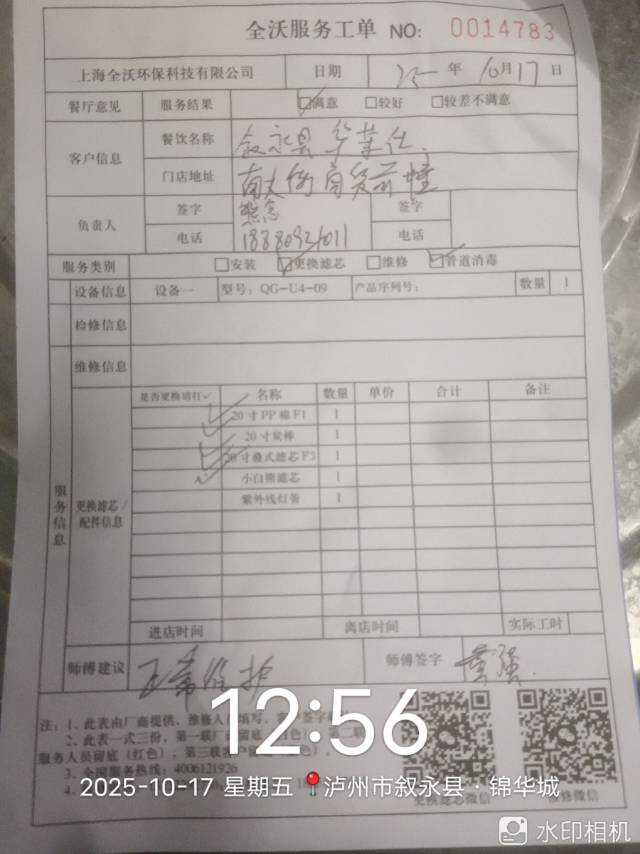 全沃服务工单 NO: 0014783
上海全沃环保科技有限公司 日期 25年10月17日
餐厅意见 服务结果 ☑满意 □较好 □较差不满意
客户信息 餐饮名称 叙永县华莱仕
门店地址
负责人 签字 签字
电话 电话
服务类别 □安装 ☑更换滤芯 □维修 ☑管道消毒
设备信息 设备一 型号: QG-U4-09 产品序列号: 数量 1
检修信息
维修信息
服务信息
更换滤芯/配件信息
是否更换请打✓ 名称 数量 单价 合计 备注
✓ 20寸PP棉F1 1
✓ 20寸炭棒 1
✓ 20寸叠式滤芯F3 1
✓ 小白熊滤芯 1
紫外线灯管 1
进店时间 离店时间 实际工时
师傅建议 正常维护 师傅签字 黄强
注: 1、此表由厂商提供、维修人
2、此表一式三份, 第一联厂
服务人员留底(红色), 第三联
3、全国服务热线: 4006121926
4、
更换滤芯微信 报修微信
12:56
2025-10-17 星期五 泸州市叙永县·锦华城
水印相机